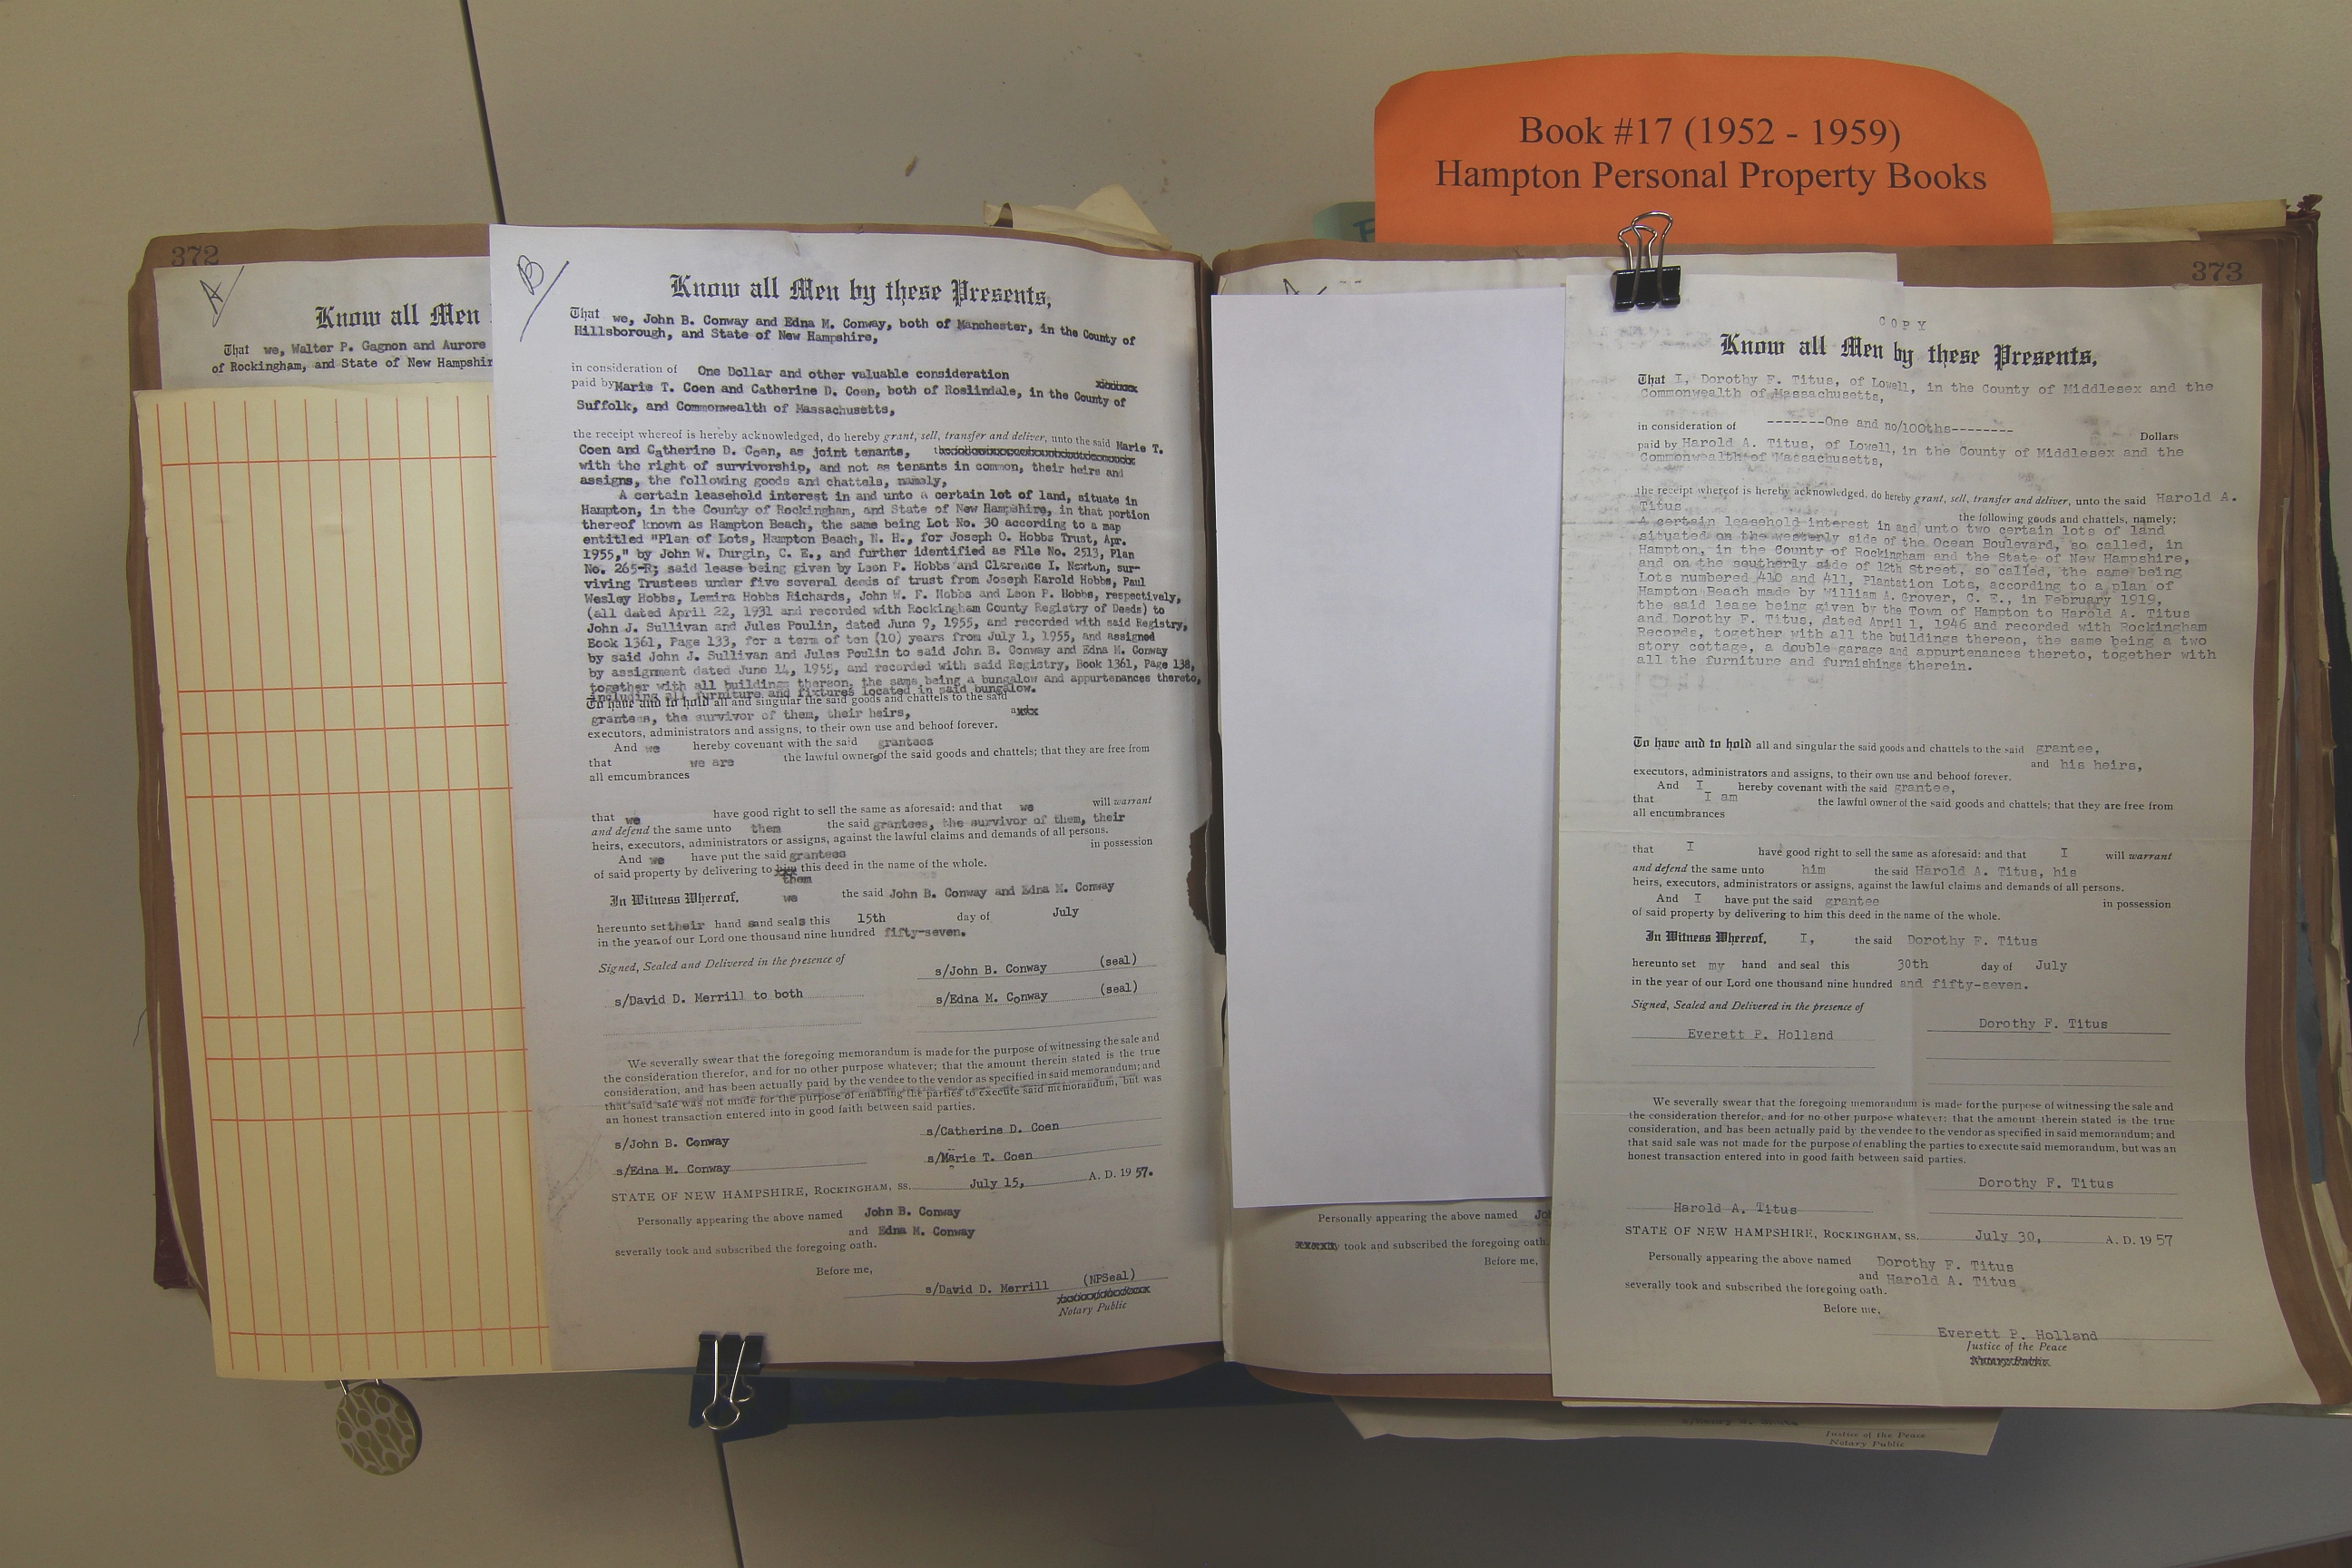 Book #17 (1952 - 1959)
Hampton Personal Property Books
372
A/
Know all Men
That we, Walter P. Gagnon and Aurore
of Rockingham, and State of New Hampshir
B/
Know all Men by these Presents,
That we, John B. Conway and Edna M. Conway, both of Manchester, in the County of
Hillsborough, and State of New Hampshire,
in consideration of One Dollar and other valuable consideration
paid by Marie T. Coen and Catherine D. Coen, both of Roslindale, in the County of
Suffolk, and Commonwealth of Massachusetts,
the receipt whereof is hereby acknowledged, do hereby grant, sell, transfer and deliver, unto the said Marie T.
Coen and Catherine D. Coen, as joint tenants,
with the right of survivorship, and not as tenants in common, their heirs and
assigns, the following goods and chattels, namely,
A certain leasehold interest in and unto a certain lot of land, situate in
Hampton, in the County of Rockingham, and State of New Hampshire, in that portion
thereof known as Hampton Beach, the same being Lot No. 30 according to a map
entitled "Plan of Lots, Hampton Beach, N. H., for Joseph O. Hobbs Trust, Apr.
1955," by John W. Durgin, C. E., and further identified as File No. 2513, Plan
No. 265-R; said lease being given by Leon P. Hobbs and Clarence I. Newton, sur-
viving Trustees under five several deeds of trust from Joseph Harold Hobbs, Paul
Wesley Hobbs, Lemira Hobbs Richards, John W. F. Hobbs and Leon P. Hobbs, respectively,
(all dated April 22, 1931 and recorded with Rockingham County Registry of Deeds) to
John J. Sullivan and Jules Poulin, dated June 9, 1955, and recorded with said Registry,
Book 1361, Page 133, for a term of ten (10) years from July 1, 1955, and assigned
by said John J. Sullivan and Jules Poulin to said John B. Conway and Edna M. Conway
by assignment dated June 14, 1955, and recorded with said Registry, Book 1361, Page 138,
together with all buildings thereon, the same being a bungalow and appurtenances thereto,
including all furniture and fixtures located in said bungalow.
To have and to hold all and singular the said goods and chattels to the said
grantees, the survivor of them, their heirs,
executors, administrators and assigns, to their own use and behoof forever.
And we hereby covenant with the said grantees
that we are the lawful owners of the said goods and chattels; that they are free from
all emcumbrances
that we have good right to sell the same as aforesaid: and that we will warrant
and defend the same unto them the said grantees, the survivor of them, their
heirs, executors, administrators or assigns, against the lawful claims and demands of all persons.
And we have put the said grantees in possession
of said property by delivering to him this deed in the name of the whole.
them
In Witness Whereof, we the said John B. Conway and Edna M. Conway
hereunto set their hand s and seals this 15th day of July
in the year of our Lord one thousand nine hundred fifty-seven.
Signed, Sealed and Delivered in the presence of
s/John B. Conway (seal)
s/David D. Merrill to both
s/Edna M. Conway (seal)
We severally swear that the foregoing memorandum is made for the purpose of witnessing the sale and
the consideration therefor, and for no other purpose whatever; that the amount therein stated is the true
consideration, and has been actually paid by the vendee to the vendor as specified in said memorandum; and
that said sale was not made for the purpose of enabling the parties to execute said memorandum, but was
an honest transaction entered into in good faith between said parties.
s/John B. Conway s/Catherine D. Coen
s/Edna M. Conway s/Marie T. Coen
STATE OF NEW HAMPSHIRE, ROCKINGHAM, SS. July 15, A. D. 1957.
Personally appearing the above named John B. Conway
and Edna M. Conway
severally took and subscribed the foregoing oath.
Before me,
s/David D. Merrill (NPSeal)
Notary Public
Personally appearing the above named
took and subscribed the foregoing oath.
Before me,
373
COPY
Know all Men by these Presents,
That I, Dorothy F. Titus, of Lowell, in the County of Middlesex and the
Commonwealth of Massachusetts,
in consideration of -------One and no/100ths-------- Dollars
paid by Harold A. Titus, of Lowell, in the County of Middlesex and the
Commonwealth of Massachusetts,
the receipt whereof is hereby acknowledged, do hereby grant, sell, transfer and deliver, unto the said Harold A.
Titus the following goods and chattels, namely;
A certain leasehold interest in and unto two certain lots of land
situated on the westerly side of the Ocean Boulevard, so called, in
Hampton, in the County of Rockingham and the State of New Hampshire,
and on the southerly side of 12th Street, so called, the same being
Lots numbered 410 and 411, Plantation Lots, according to a plan of
Hampton Beach made by William A. Grover, C. E., in February 1919,
the said lease being given by the Town of Hampton to Harold A. Titus
and Dorothy F. Titus, dated April 1, 1946 and recorded with Rockingham
Records, together with all the buildings thereon, the same being a two
story cottage, a double garage and appurtenances thereto, together with
all the furniture and furnishings therein.
To have and to hold all and singular the said goods and chattels to the said grantee,
and his heirs,
executors, administrators and assigns, to their own use and behoof forever.
And I hereby covenant with the said grantee,
that I am the lawful owner of the said goods and chattels; that they are free from
all encumbrances
that I have good right to sell the same as aforesaid: and that I will warrant
and defend the same unto him the said Harold A. Titus, his
heirs, executors, administrators or assigns, against the lawful claims and demands of all persons.
And I have put the said grantee in possession
of said property by delivering to him this deed in the name of the whole.
In Witness Whereof, I, the said Dorothy F. Titus
hereunto set my hand and seal this 30th day of July
in the year of our Lord one thousand nine hundred and fifty-seven.
Signed, Sealed and Delivered in the presence of
Everett P. Holland Dorothy F. Titus
We severally swear that the foregoing memorandum is made for the purpose of witnessing the sale and
the consideration therefor, and for no other purpose whatever: that the amount therein stated is the true
consideration, and has been actually paid by the vendee to the vendor as specified in said memorandum; and
that said sale was not made for the purpose of enabling the parties to execute said memorandum, but was an
honest transaction entered into in good faith between said parties.
Dorothy F. Titus
Harold A. Titus
STATE OF NEW HAMPSHIRE, ROCKINGHAM, SS. July 30, A. D. 1957
Personally appearing the above named Dorothy F. Titus
and Harold A. Titus
severally took and subscribed the foregoing oath.
Before me,
Everett P. Holland
Justice of the Peace
Notary Public
Justice of the Peace
Notary Public